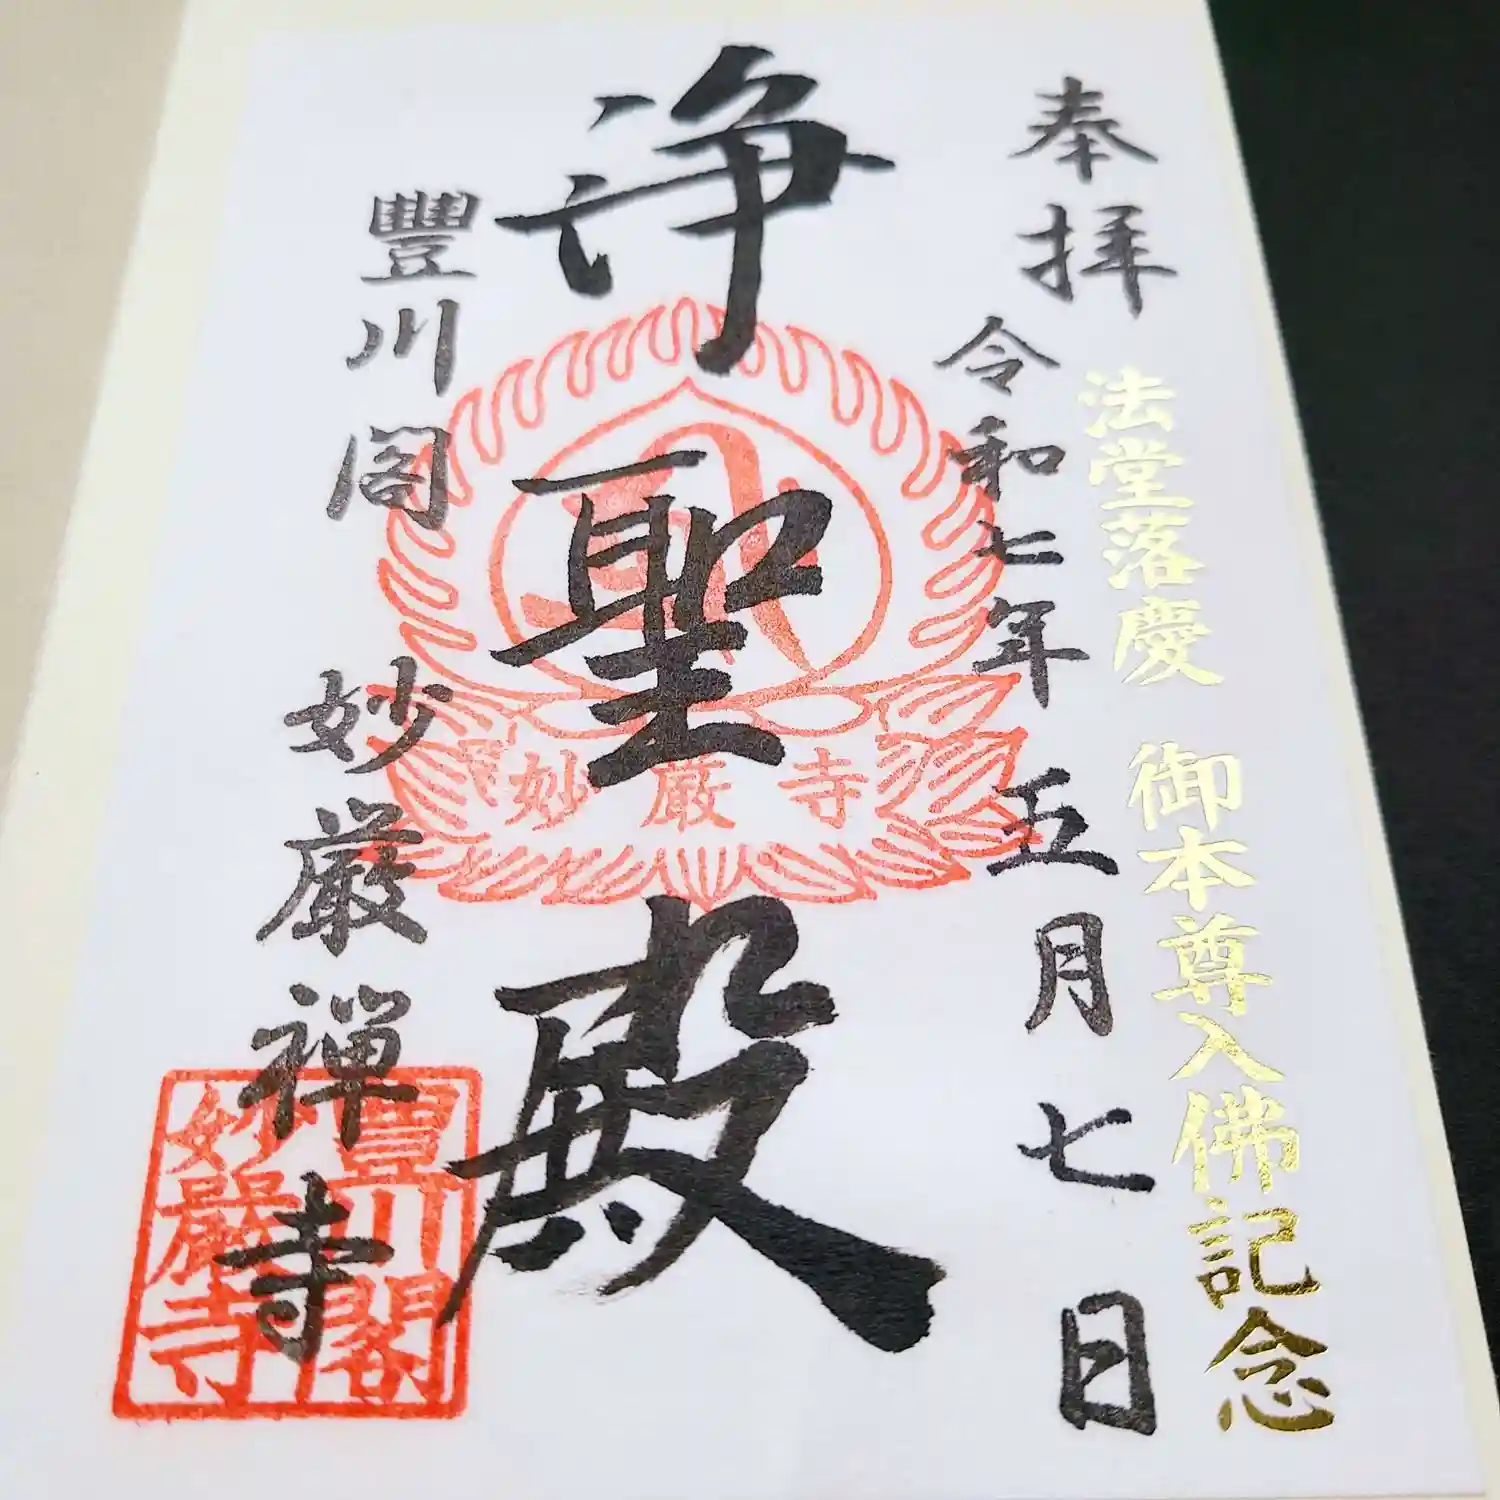 奉拝
法堂落慶 御本尊入佛記念
令和七年 五月七日
浄聖殿
妙厳寺
豐川閣 妙厳禅寺
豐川閣
妙嚴寺